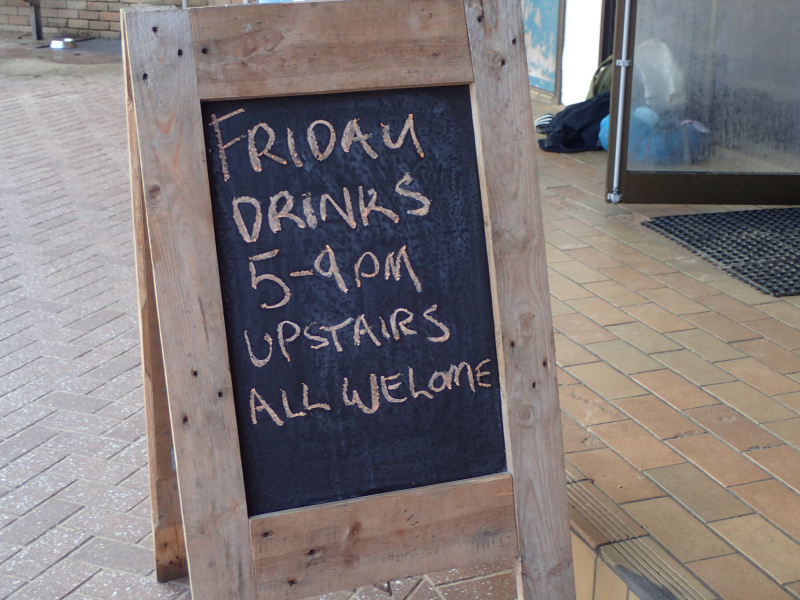 FRIDAY
DRINKS
5-9PM
UPSTAIRS
ALL WELCOME